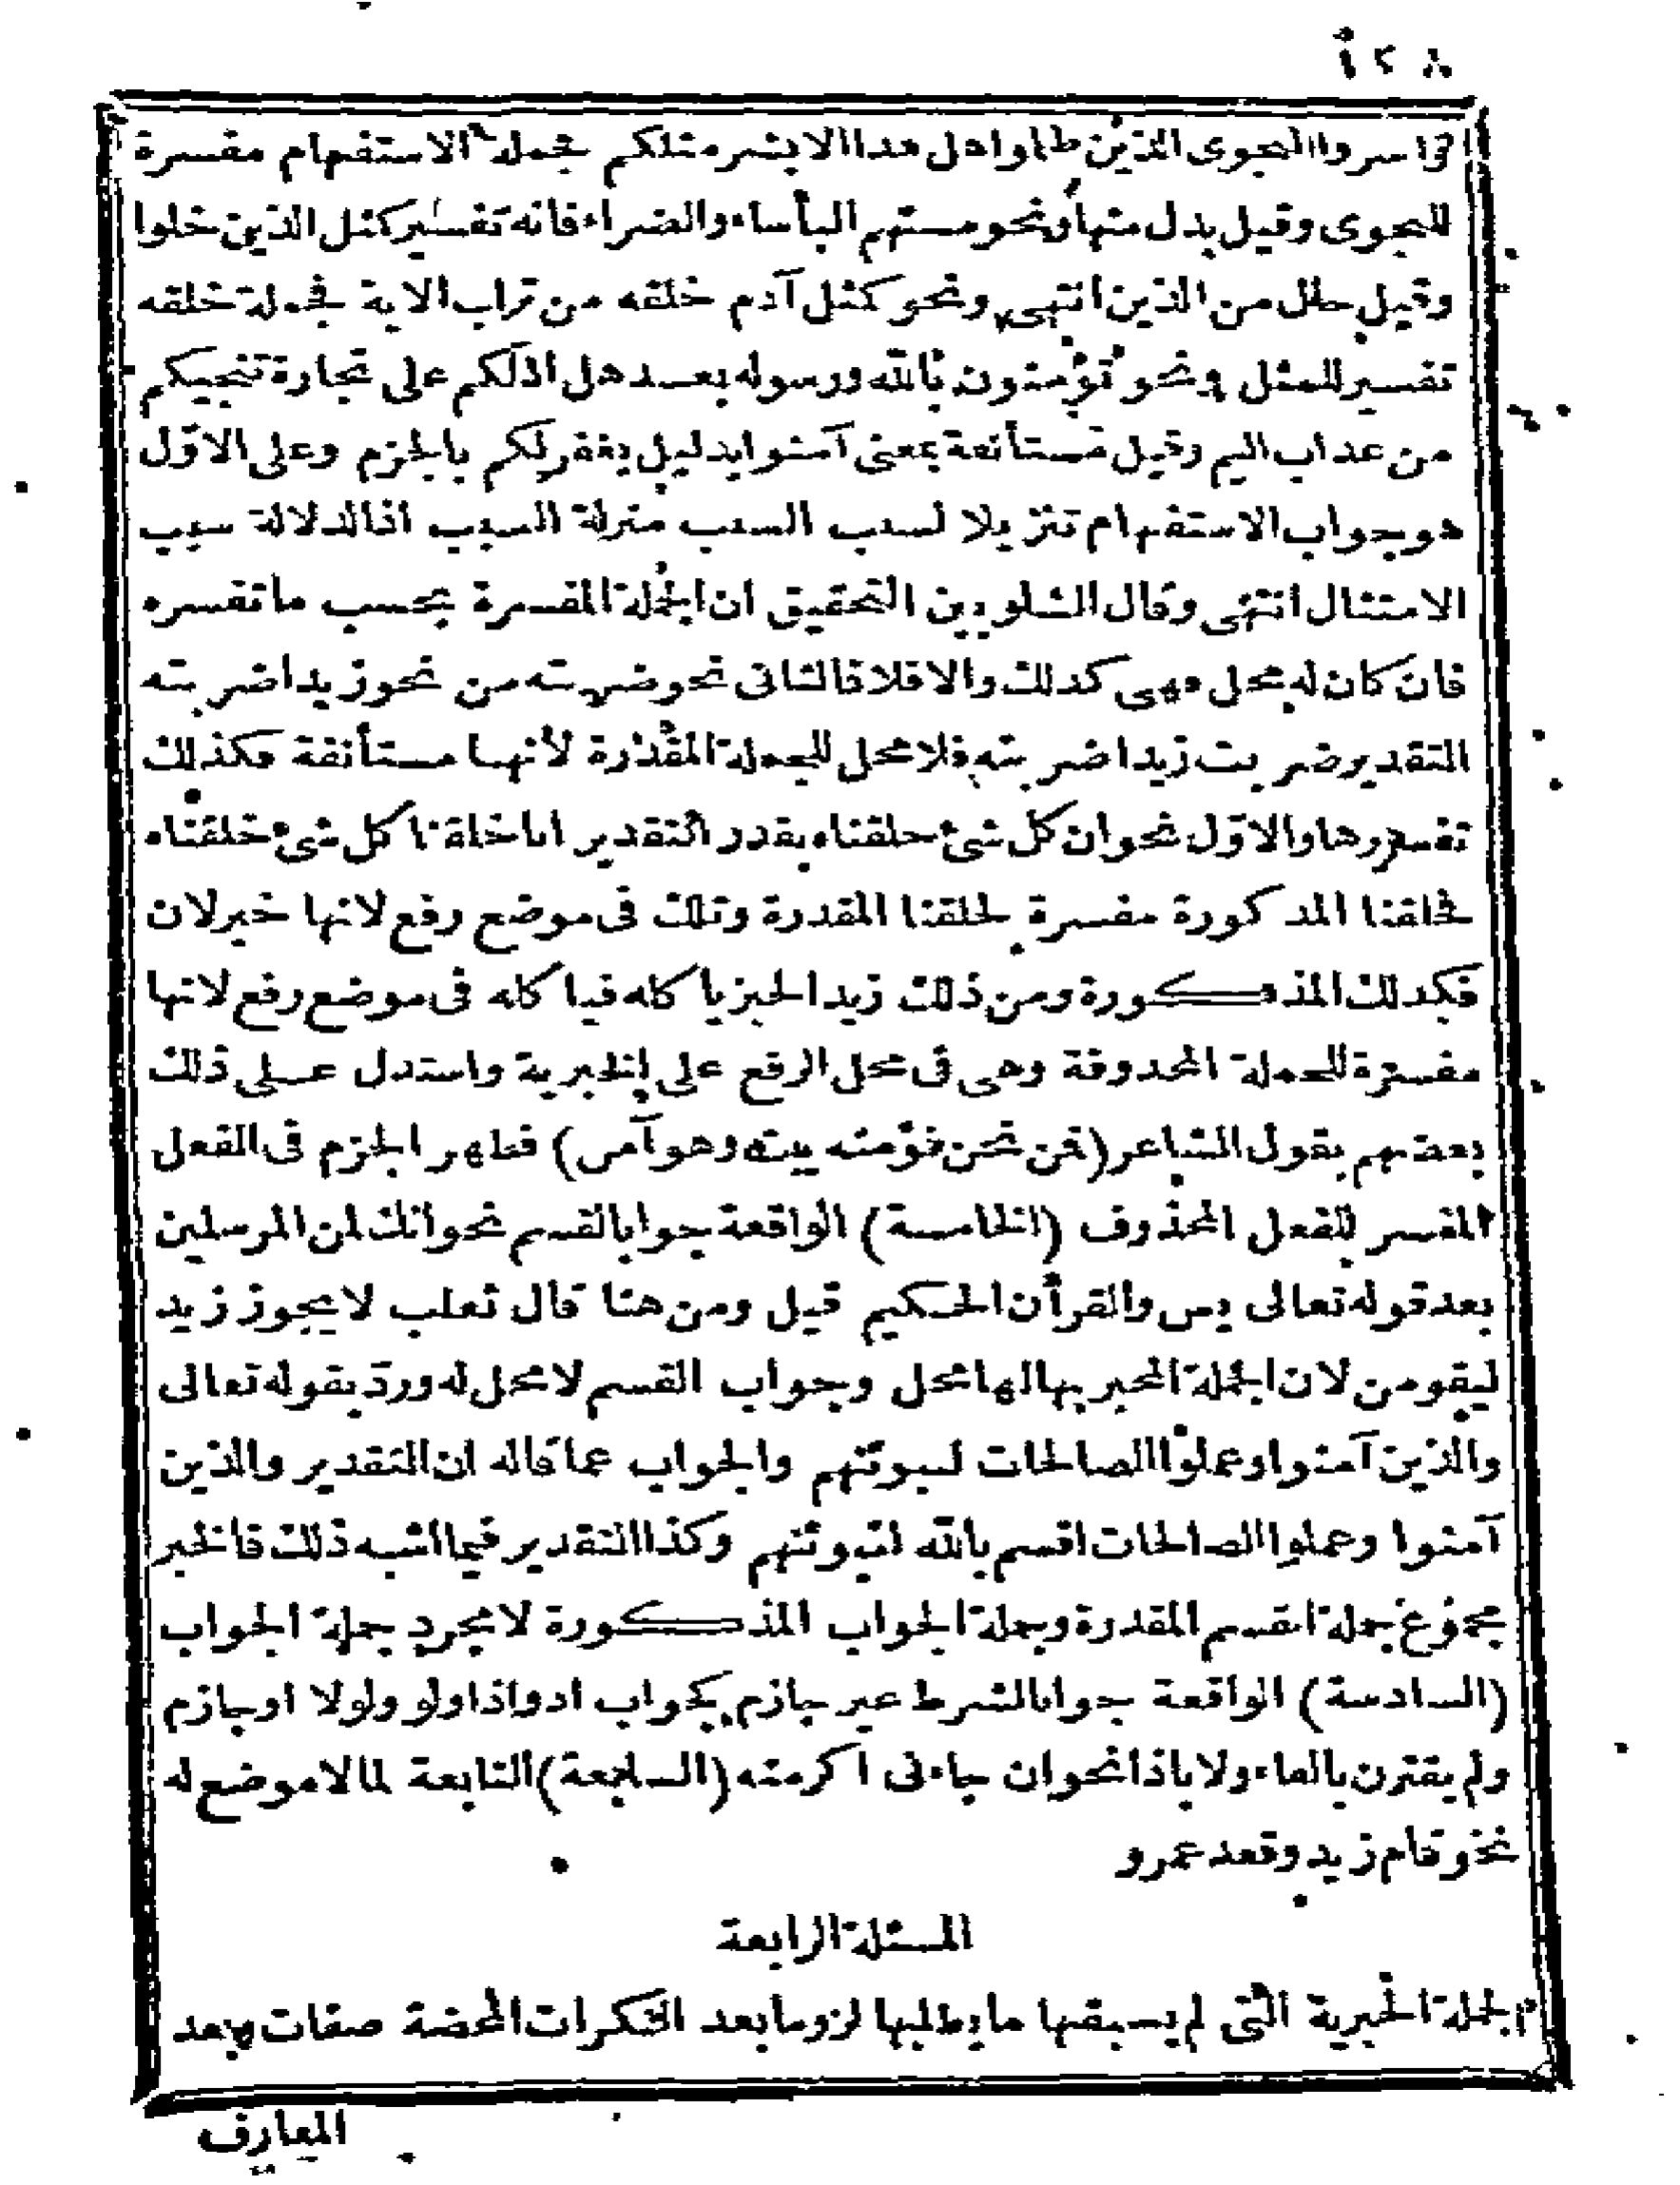 ٤٢٨
واسروا النجوى الذين ظلموا هل هذا الا بشر مثلكم فجملة الاستفهام مفسرة
للنجوى وقيل بدل منها ونحو مستهم البأساء والضراء فانه تفسير كمثل الذين خلوا
وقيل حال من الذين انتهى ونحو كمثل آدم خلقه من تراب الاية فجملة خلقه
تفسير للمثل ونحو تؤمنون بالله ورسوله بعد هل ادلكم على تجارة تنجيكم
من عذاب اليم وقيل مستأنفة بمعنى آمنوا بدليل يغفر لكم بالجزم وعلى الاوّل
هو جواب الاستفهام تنزيلا لسبب السبب منزلة السبب اذ الدلالة سبب
الامتثال انتهى وقال الشلوبين التحقيق ان الجملة المفسرة بحسب ما تفسره
فان كان له محل فهى كذلك والا فلا فالثانى نحو ضربته من نحو زيدا ضربته
التقدير ضربت زيدا ضربته فلا محل للجملة المقدّرة لأنها مستأنفة فكذلك
تفسيرها والاوّل نحو ان كل شئ خلقناه بقدر التقدير انا خلقنا كل شئ خلقناه
فخلقنا المذكورة مفسرة لخلقنا المقدرة وتلك فى موضع رفع لانها خبر لان
فكذلك المذكورة ومن ذلك زيد الخبز يأكله فيأكله فى موضع رفع لانها
مفسرة للجملة المحذوفة وهى فى محل الرفع على الخبرية واستدل على ذلك
بعضهم بقول الشاعر (فمن نحن نؤمنه يبت وهو آمن) فظهر الجزم فى الفعل
المفسر للفعل المحذوف (الخامسة) الواقعة جوابا لقسم نحو انك لمن المرسلين
بعد قوله تعالى يس والقرأن الحكيم قيل ومن هنا قال ثعلب لا يجوز زيد
ليقومن لان الجملة المخبر بها لها محل وجواب القسم لا محل له وردّ بقوله تعالى
والذين آمنوا وعملوا الصالحات لنبوئنهم والجواب عما قاله ان التقدير والذين
آمنوا وعملوا الصالحات اقسم بالله لنبوئنهم وكذا التقدير فيما اشبه ذلك فالخبر
مجموع جملة القسم المقدرة وجملة الجواب المذكورة لا مجرد جملة الجواب
(السادسة) الواقعة جوابا لشرط غير جازم كجواب اذ واذا ولو ولولا او جازم
ولم يقترن بالفاء ولا باذا نحو ان جاءنى اكرمته (السابعة) التابعة لما لا موضع له
نحو قام زيد وقعد عمرو
المسئلة الرابعة
الجملة الخبرية التى لم يسبقها ما يطلبها لزوما بعد النكرات المحضة صفات وبعد
المعارف